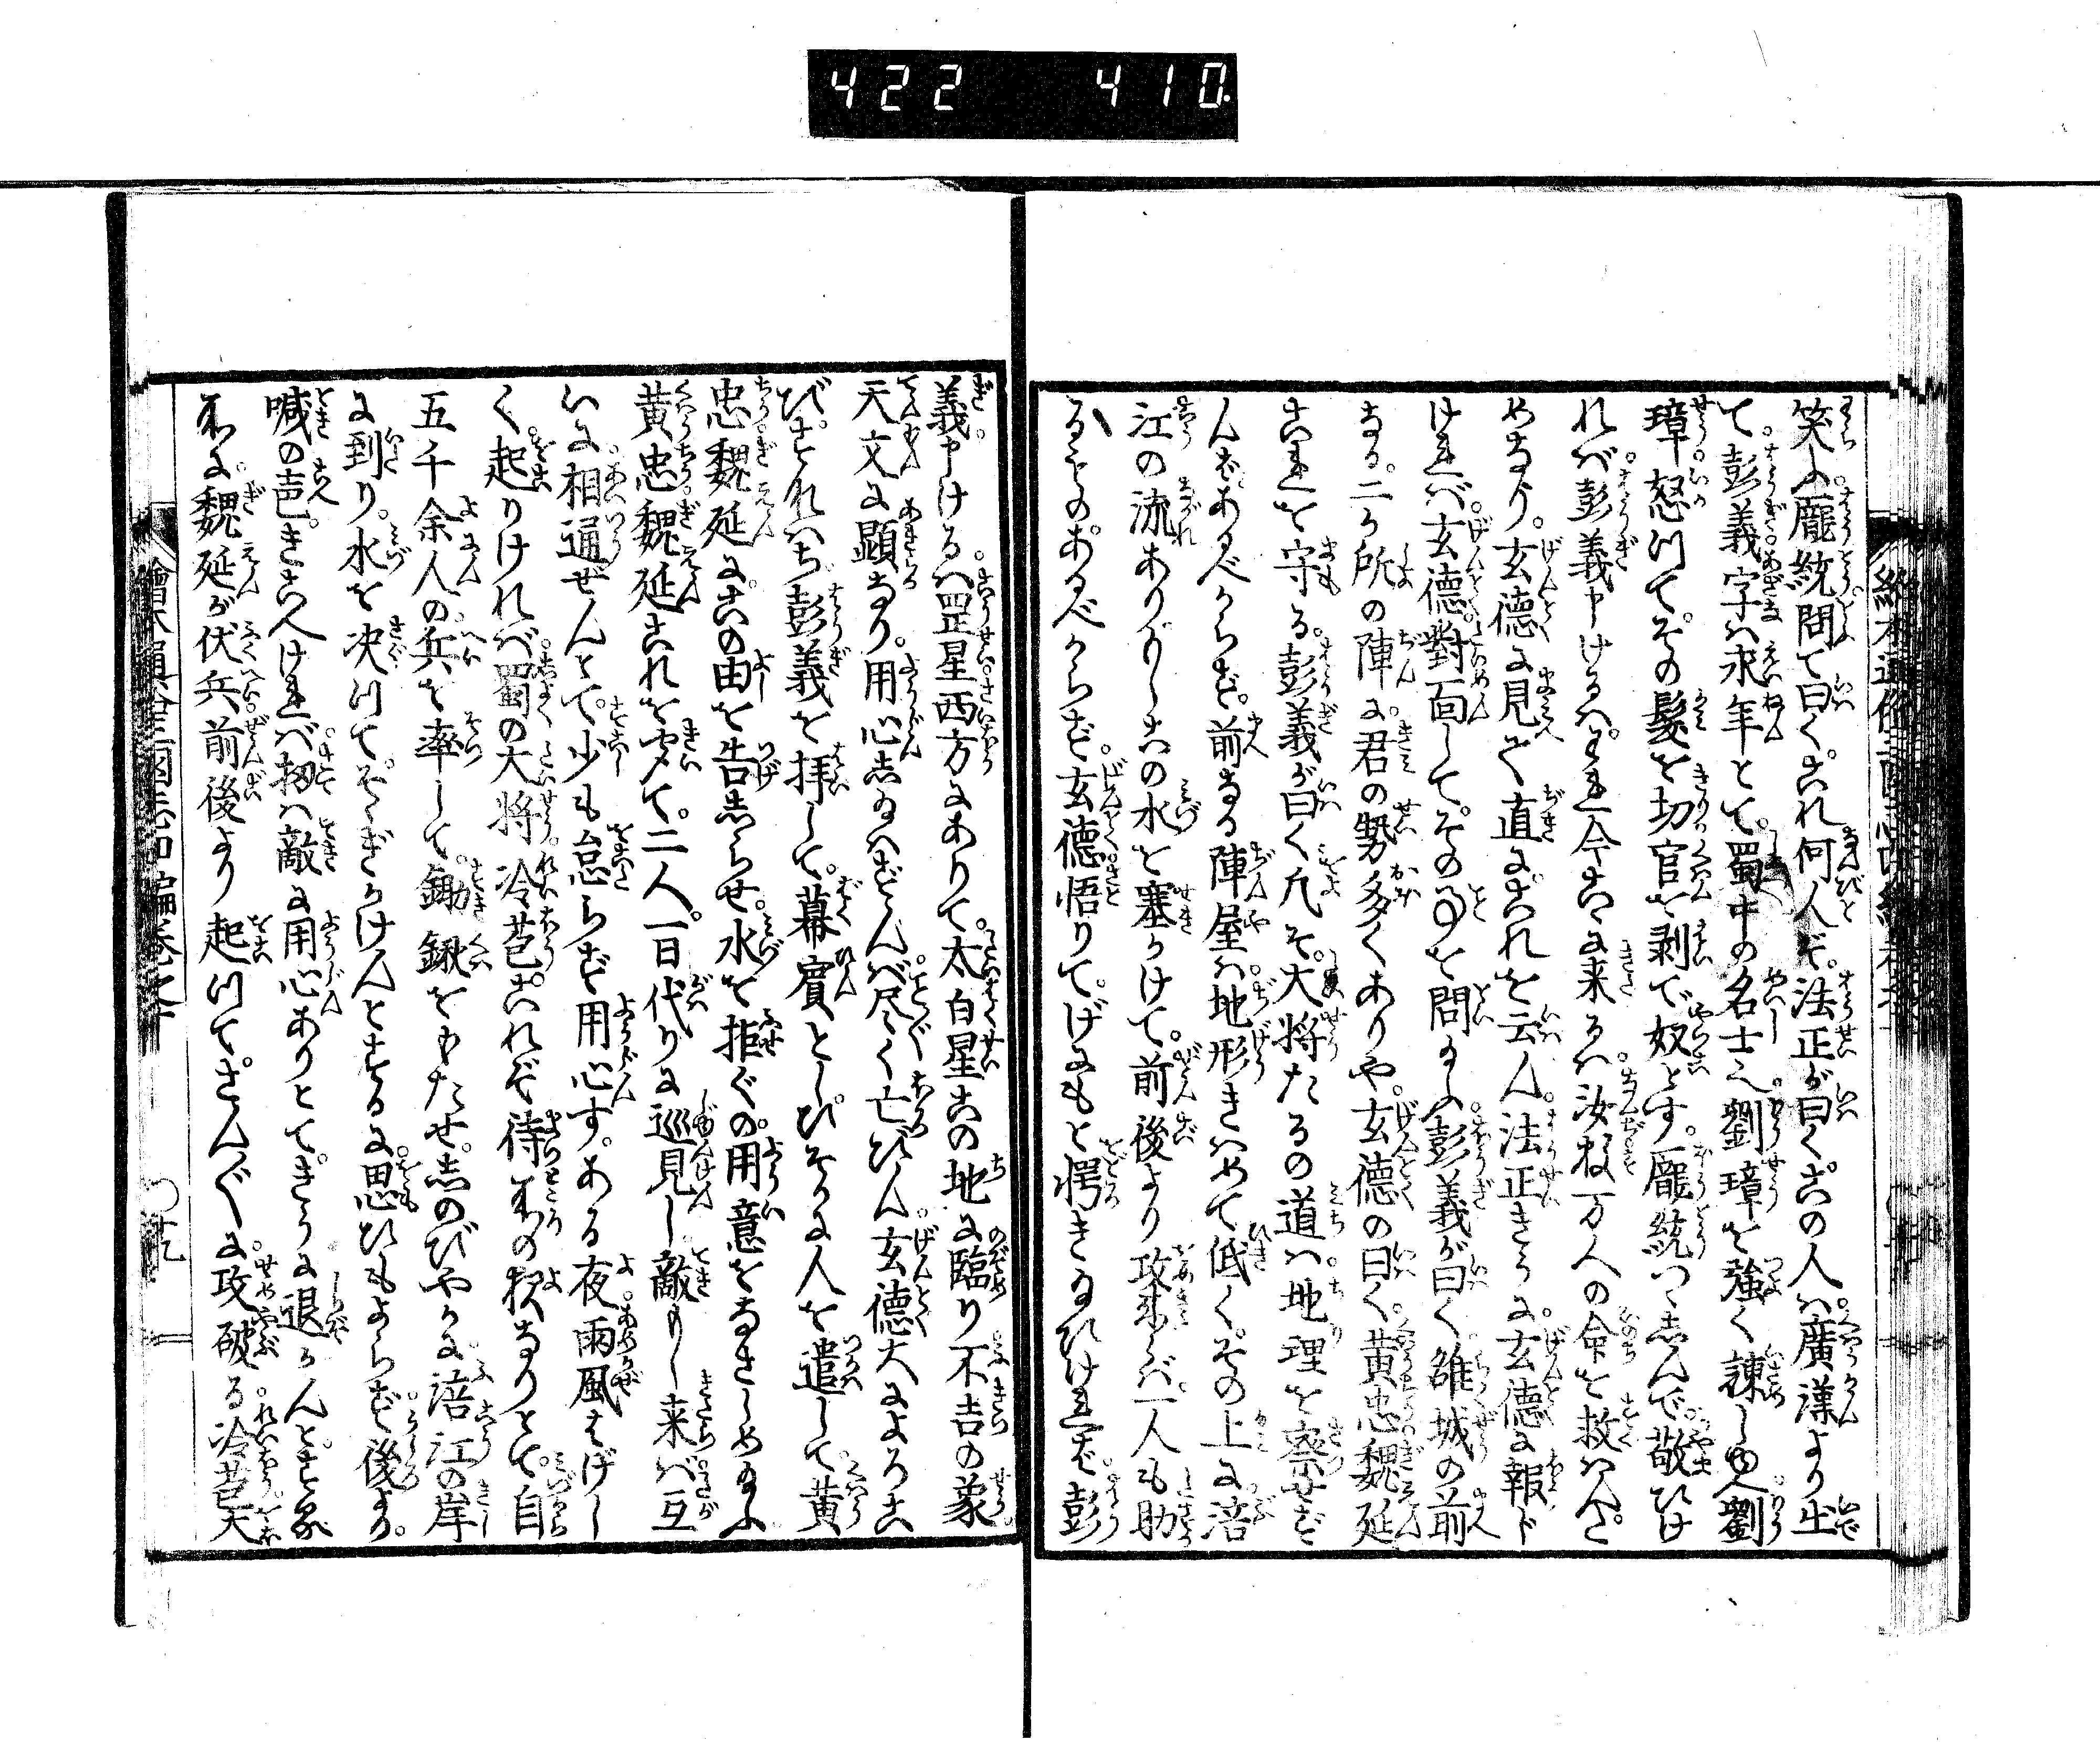 422 410
笑ふ。龐統問て曰く。これ何人ぞ。法正が曰くこの人は廣漢より出
て彭義字は永年とて。蜀中の名士也。劉璋を強く諫しゆへ。劉
璋怒つて。その髪を切。官を剥で奴とす。龐統つゝしんで。敬ひけ
れば。彭義申けるは。われ今こゝに来るは。汝枝万人の命を救はんた
めなり。玄徳に見えて直にこれを云ん。法正きうに。玄徳に報ド
ければ。玄徳。對面して。その事を問給ふ。彭義が曰く雒城の前
なる。二ヶ所の陣に。君の勢多くありや。玄徳の曰く。黄忠魏延
これを守る。彭義が曰く凡そ。大将たるの道は。地理を察せず
んばあるべからず。前なる陣屋は。地形きはめて低くその上に涪
江の流ありもしこの水を塞かけて。前後より攻来らば一人も助
るものあるべからず。玄徳悟りて。げにもと愕きゐひければ彭
義申けるは。罡星西方にありて。太白星この地に臨り不吉の象
天文に顕なり。用心しゐはずんば。尽く亡びん。玄徳大によろこ
び。すなはち彭義を拝して。幕賓とし。ひそかに人を遣して。黄
忠魏延にこの由を告しらせ。水を拒ぐの用意をなさしめ給ふ
黄忠魏延これを聞て。二人一日代りに巡見し敵もし来ば。互
いに相通ぜんとて。少も怠らず用心す。ある夜雨風はげし
く起りければ。蜀の大将冷苞これぞ待所の夜なりとて。自
五千余人の兵を率して。鋤鍬をもたせ。しのびやかに涪江の岸
に到り。水を决つてそゝぎかけんとするに思ひもよらず後より。
喊の声。きこへければ。扨は敵に用心ありとて。きうに退かんとする
所に。魏延が伏兵前後より起つて。さんざんに攻破る。冷苞大
繪本通俗三國志四編巻之十